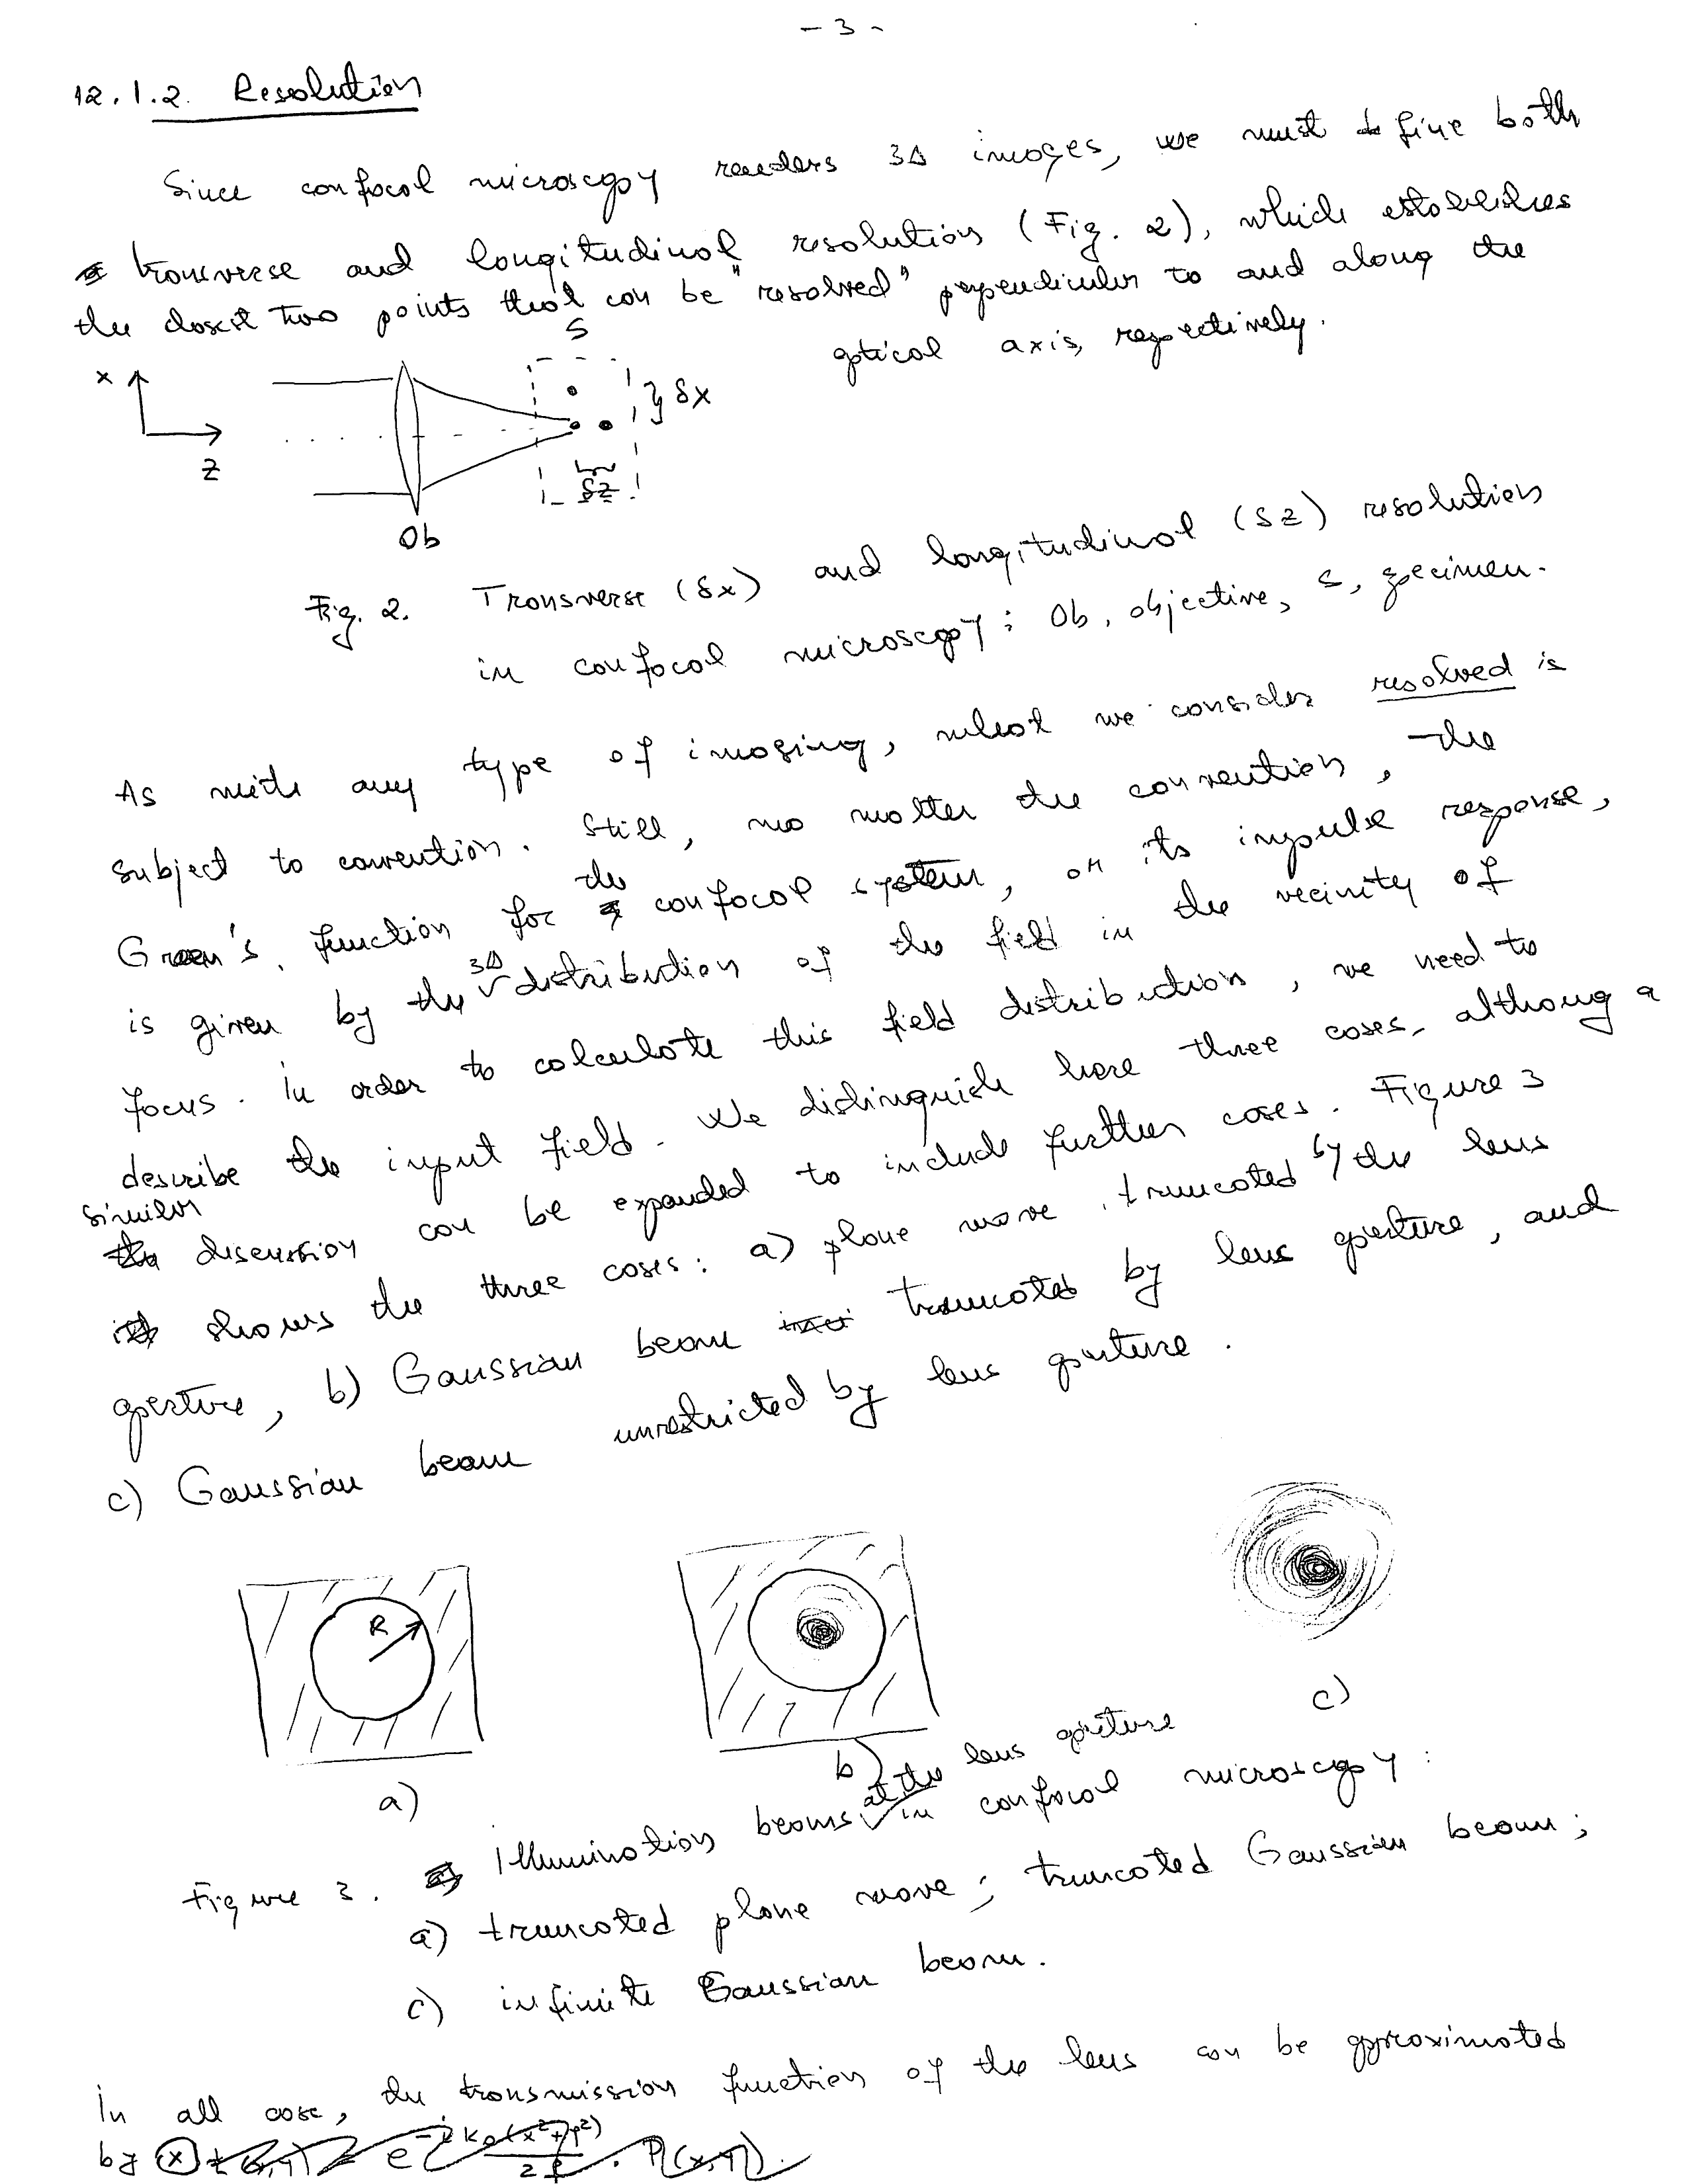 - 3 -
12.1.2. Resolution
Since confocal microscopy renders 3D images, we must define both
transverse and longitudinal resolution (Fig. 2), which establishes
the closest two points that can be "resolved" perpendicular to and along the
optical axis, respectively.
S
x
δx
z
δz
Ob
Fig. 2. Transverse (δx) and longitudinal (δz) resolution
in confocal microscopy; Ob, objective, S, specimen.
As with any type of imaging, what we consider resolved is
subject to convention. Still, no matter the convention, the
Green's function for the confocal system, or its impulse response,
is given by the 3D distribution of the field in the vecinity of
focus. In order to calculate this field distribution, we need to
describe the input field. We distinguish here three cases, although a
similar discussion can be expanded to include further cases. Figure 3
shows the three cases: a) plane wave truncated by the lens
aperture, b) Gaussian beam truncated by lens aperture, and
c) Gaussian beam unrestricted by lens aperture.
R
a)
b)
c)
Figure 3. Illumination beams at the lens aperture in confocal microscopy:
a) truncated plane wave; truncated Gaussian beam;
c) infinite Gaussian beam.
In all case, the transmission function of the lens can be approximated
by